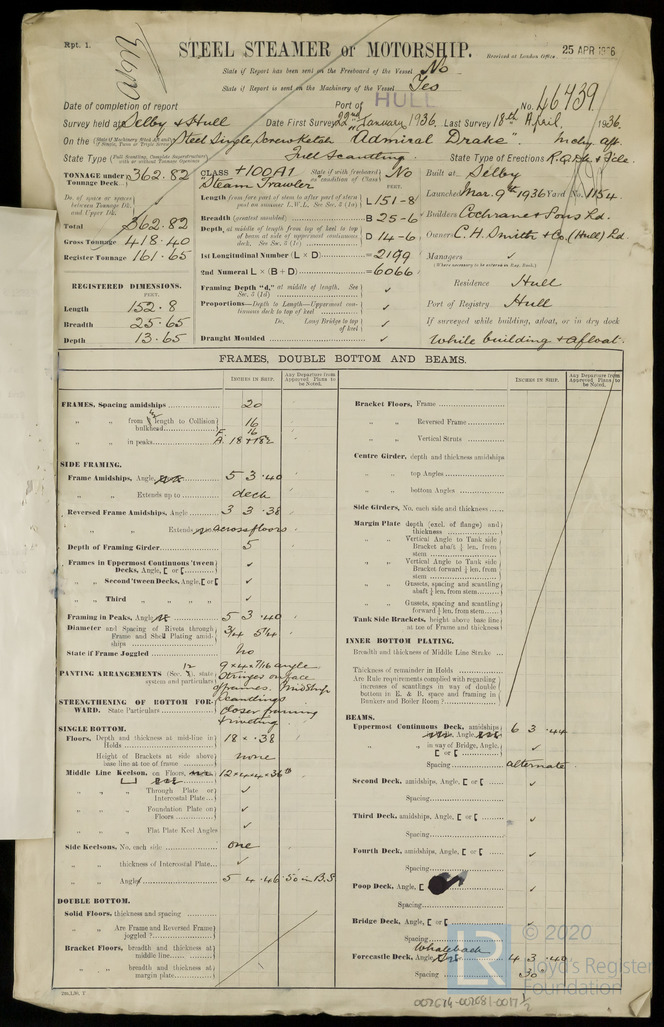 Rpt. 1.
STEEL STEAMER or MOTORSHIP.
Received at London Office 25 APR 1936
State if Report has been sent on the Freeboard of the Vessel No
State if Report is sent on the Machinery of the Vessel Yes
Date of completion of report
Port of HULL
No. 46439
Survey held at Selby & Hull
Date First Survey 22nd January 1936.
Last Survey 18th April 1936.
On the Steel Single Screw Ketch "Admiral Drake". Mchy. aft.
State Type Full Scantling
State Type of Erections R.Q.Dk & Fcle.
TONNAGE under Tonnage Deck 362.82
Do. of space or spaces between Tonnage Dk. and Upper Dk. ✓
Total 362.82
Gross Tonnage 418.40
Register Tonnage 161.65
REGISTERED DIMENSIONS.
FEET.
Length 152.8
Breadth 25.65
Depth 13.65
CLASS +100A1 State if with freeboard as condition of Class No
"Steam Trawler"
FEET.
Length from fore part of stem to after part of stern post on summer L.W.L. See Sec. 3 (1a) L 151-8
Breadth (greatest moulded) B 25-6
Depth, at middle of length from top of keel to top of beam at side of uppermost continuous deck. See Sec. 3 (1c) D 14-6
1st Longitudinal Number (L × D) = 2199
2nd Numeral L × (B + D) = 6066
Framing Depth "d," at middle of length. See Sec. 3 (1d) ✓
Proportions—Depth to Length—Uppermost continuous deck to top of keel ✓
Do. Long Bridge to top of keel ✓
Draught Moulded ✓
Built at Selby
Launched Mar. 9th 1936 Yard No. 1154
Builders Cochrane & Sons Ld.
Owners C. H. Smith & Co. (Hull) Ld.
Managers ✓
(Where necessary to be entered in Reg. Book.)
Residence Hull
Port of Registry Hull
If surveyed while building, afloat, or in dry dock
While building & afloat.
FRAMES, DOUBLE BOTTOM AND BEAMS.
INCHES IN SHIP.
Any Departure from Approved Plans to be Noted.
FRAMES, Spacing amidships 20
" " from length to Collision bulkhead 16
" " in peaks F. 16 A. 18 & 18½
SIDE FRAMING.
Frame Amidships, Angle 5 3 .40
" " Extends up to deck
Reversed Frame Amidships, Angle 3 3 .38
" " Extends across floors
Depth of Framing Girder 5
Frames in Uppermost Continuous 'tween Decks, Angle, [ or [ ✓
" " Second 'tween Decks, Angle, [ or [ ✓
" " Third " " " " ✓
Framing in Peaks, Angle 5 3 .40
Diameter and Spacing of Rivets through Frame and Shell Plating amidships 3/4 5 1/4
State if Frame Joggled no
PANTING ARRANGEMENTS (Sec. 12), state system and particulars 9 x 4 x 7/16 angle Stringer on face of frames. Midship Scantlings
STRENGTHENING OF BOTTOM FORWARD. State Particulars closer framing & riveting
SINGLE BOTTOM.
Floors, Depth and thickness at mid-line in Holds 18 x .38
Height of Brackets at side above base line at toe of frame none
Middle Line Keelson, on Floors, 12 x 4 x 4 x .36
" " Through Plate or Intercostal Plate ✓
" " Foundation Plate on Floors ✓
" " Flat Plate Keel Angles ✓
Side Keelsons, No. each side one
" " thickness of Intercostal Plate ✓
" " Angle 5 4 .46 .50 in B.S
DOUBLE BOTTOM.
Solid Floors, thickness and spacing
" " Are Frame and Reversed Frame joggled ?
Bracket Floors, breadth and thickness at middle line
" " breadth and thickness at margin plate
Bracket Floors, Frame
" " Reversed Frame
" " Vertical Struts
Centre Girder, depth and thickness amidships
" " top Angles
" " bottom Angles
Side Girders, No. each side and thickness
Margin Plate depth (excl. of flange) and thickness
" " Vertical Angle to Tank side Bracket abaft ¼ len. from stem
" " Vertical Angle to Tank side Bracket forward ¼ len. from stem
" " Gussets, spacing and scantling abaft ¼ len. from stem
" " Gussets, spacing and scantling forward ¼ len. from stem
Tank Side Brackets, height above base line at toe of Frame and thickness
INNER BOTTOM PLATING.
Breadth and thickness of Middle Line Strake
Thickness of remainder in Holds
Are Rule requirements complied with regarding increases of scantlings in way of double bottom in E. & B. space and framing in Bunkers and Boiler Room ?
BEAMS.
Uppermost Continuous Deck, amidships Angle, 6 3 .44
" " in way of Bridge, Angle, [ or [ ✓
Spacing alternate
Second Deck, amidships, Angle, [ or [ ✓
Spacing
Third Deck, amidships, Angle, [ or [ ✓
Spacing
Fourth Deck, amidships, Angle, [ or [ ✓
Spacing
Poop Deck, Angle, [ ✓
Spacing
Bridge Deck, Angle, [ or [ ✓
Spacing
Whaleback
Forecastle Deck, Angle 4 3 .40
Spacing 30
© 2020
Lloyd's Register
Foundation
LR
007674-007681-0017 1/2